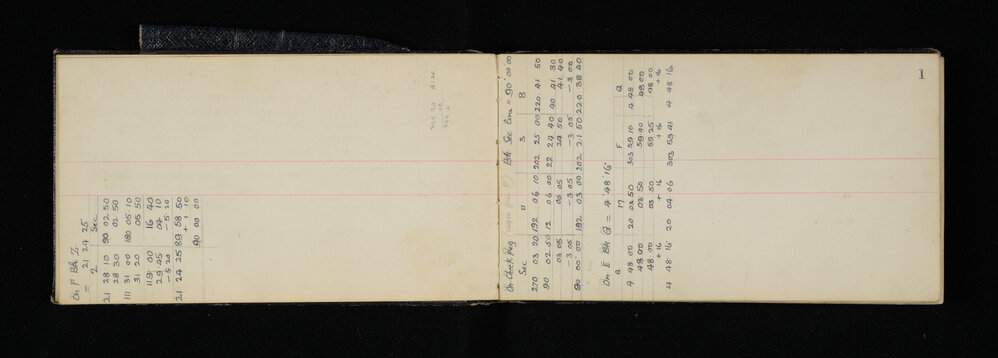 On P Bk Z
= 21 24 25
Z Sec
21 28 10 90 02 50
28 30 02 50
111 31 00 180 05 10
31 20 05 50
119 00 16 40
29 45 04 10
-5 20 -5 20
21 24 25 89 58 50
+ 1 10
90 00 00
On Check Peg Bk Sec line = 90° 00 00
Sec 0 3 8
270 03 20 192 06 10 202 25 00 220 41 50
90 02 50 12 06 00 22 24 40 40 41 30
03 05 06 05 24 50 41 40
-3 05 -3 05 -3 05 -3 00
90 00 00 192 03 00 202 21 50 220 38 40
On E Bk Q = 4° 48' 16"
Q 17 F Q
4 48 00 20 03 50 303 59 10 4 48 00
48 00 03 50 59 40 48 00
48 00 03 50 59 25 48 00
+ 16 + 16 + 16 + 16
4 48 16 20 04 06 303 59 41 4 48 16
1